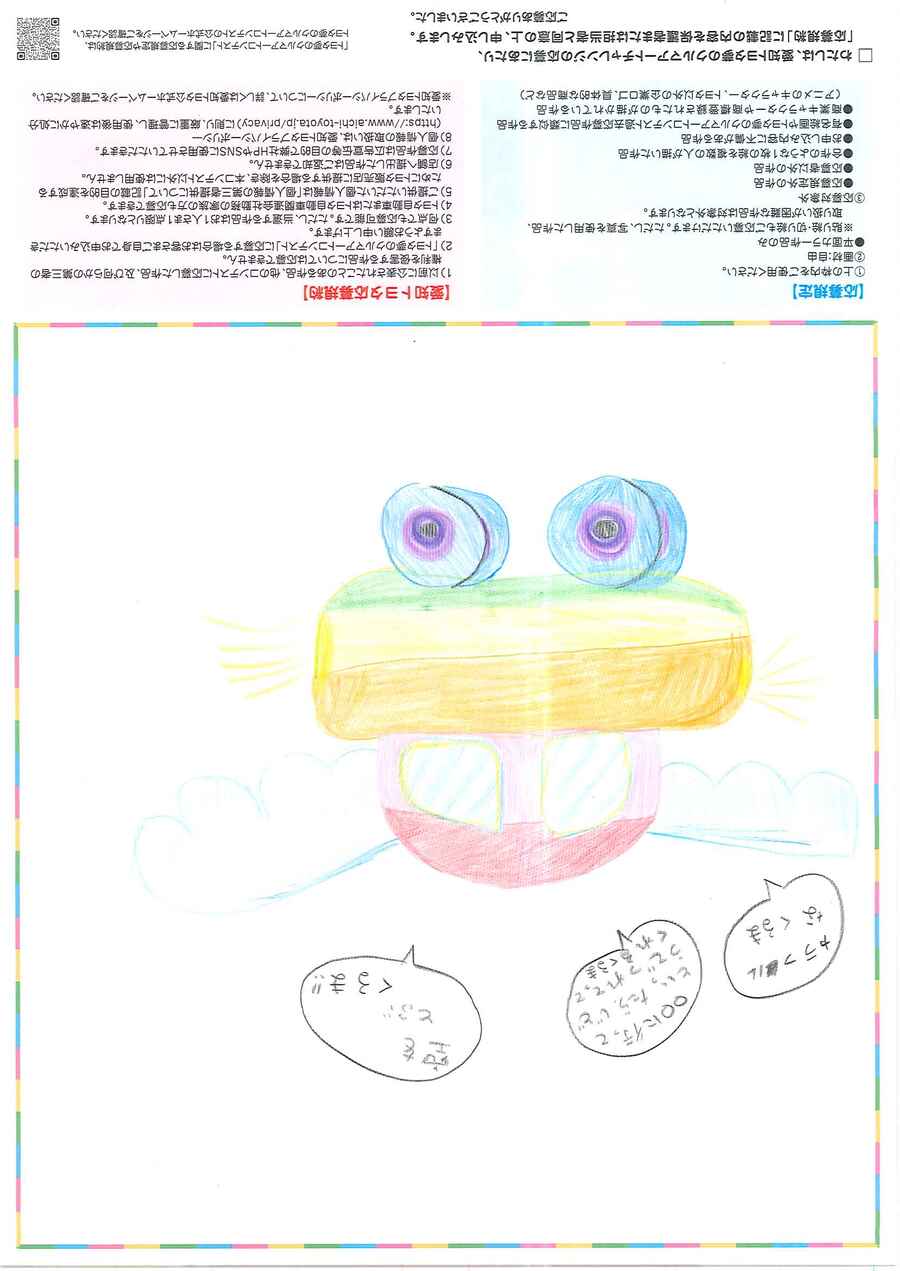 カラフル
なくるま
〇〇に行って
といったら、じど
うでつれてって
くれるくるま
空を
とぶ
くるま!!
【応募規定】
①上の枠内をご使用ください。
②画材:自由
●平面カラー作品のみ
※貼り絵・切り絵もご応募いただけます。ただし、写真を使用した作品、
取り扱いが困難な作品は対象外となります。
③応募対象外
●応募規定外の作品
●応募者以外の作品
●合作のような1枚の絵を複数の人が描いた作品
●お申し込み内容に不備がある作品
●有名絵画やトヨタ夢のクルマアートコンテスト過去応募作品に類似する作品
●商業キャラクターや商標登録されたものが描かれている作品
(アニメのキャラクター、トヨタ以外の企業ロゴ、具体的な商品など)
【愛知トヨタ応募規約】
1)以前に公表されたことのある作品、他のコンテストに応募した作品、及び何らかの第三者の
権利を侵害する作品については応募できません。
2)「トヨタ夢のクルマアートコンテスト」に応募する場合はお客さまご自身でお申込みいただき
ますようお願い申し上げます。
3)何点でも応募可能です。ただし、当選する作品はお1人さま1点限りとなります。
4)トヨタ自動車またはトヨタ自動車関連会社勤務の家族の方も応募できます。
5)ご提供いただいた個人情報は「個人情報の第三者提供について」記載の目的を達成する
ためにトヨタ販売店に提供する場合を除き、本コンテスト以外には使用しません。
6)店舗へ提出した作品はご返却できません。
7)応募作品は広告宣伝等の目的で弊社HPやSNSに使用させていただきます。
8)個人情報の取扱いは、愛知トヨタプライバシーポリシー
(https://www.aichi-toyota.jp/privacy)に則り、厳重に管理し、使用後は速やかに処分
いたします。
※愛知トヨタプライバシーポリシーについて、詳しくは愛知トヨタ公式ホームページをご確認ください。
□わたしは、愛知トヨタ夢のクルマアートチャレンジの応募にあたり、
「応募規約」に記載の内容を保護者または担当者と同意の上、申し込みします。
ご応募ありがとうございました。
「トヨタ夢のクルマアートコンテスト」に関する応募規定や応募規約は、
トヨタ夢のクルマアートコンテストの公式ホームページをご確認ください。